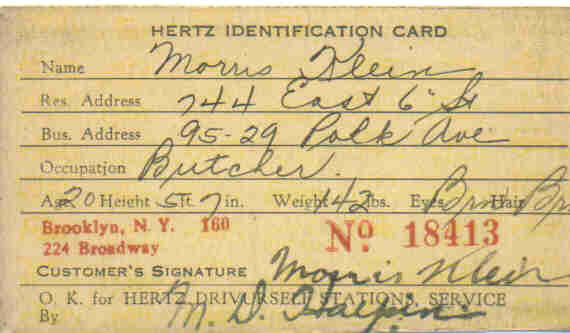 HERTZ IDENTIFICATION CARD
Name Morris Klein
Res. Address 744 East 6" St
Bus. Address 95-29 Polk Ave
Occupation Butcher.
Age 20 Height 5 ft. 7 in. Weight 142 lbs. Eyes Brn Hair Br
Brooklyn, N. Y. 160
224 Broadway
No 18413
CUSTOMER'S SIGNATURE Morris Klein
O. K. for HERTZ DRIVURSELF STATIONS, SERVICE
By M. D. Halpin